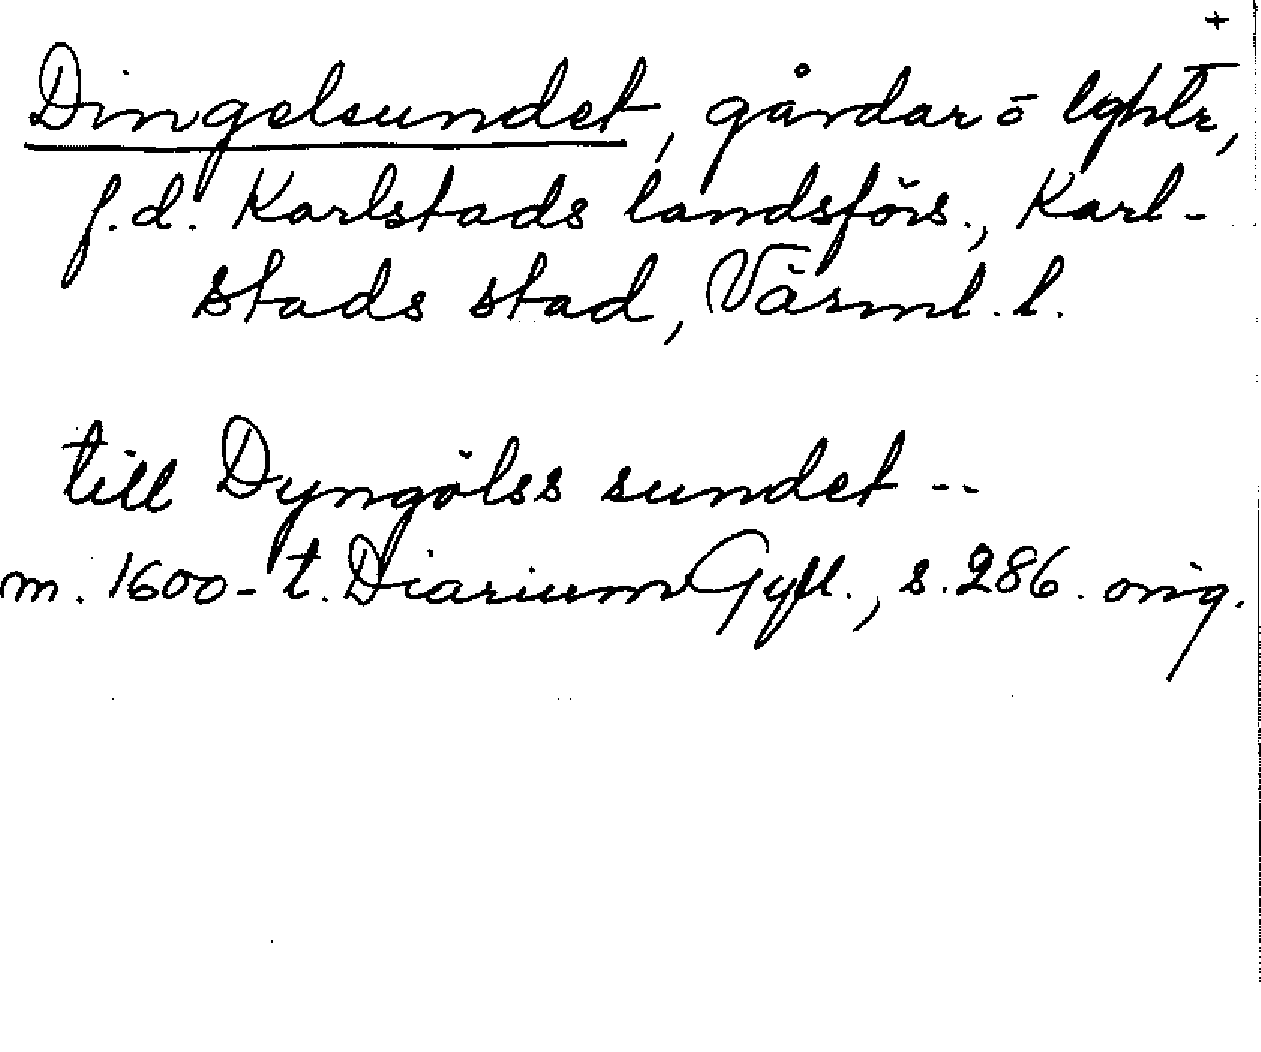 +
Dingelsundet, gårdar o lghtr,
f.d. Karlstads landsförs., Karl-
stads stad, Värml. l.
till Dyngölss sundet --
m. 1600-t. Diarium Gyll., s. 286. orig.